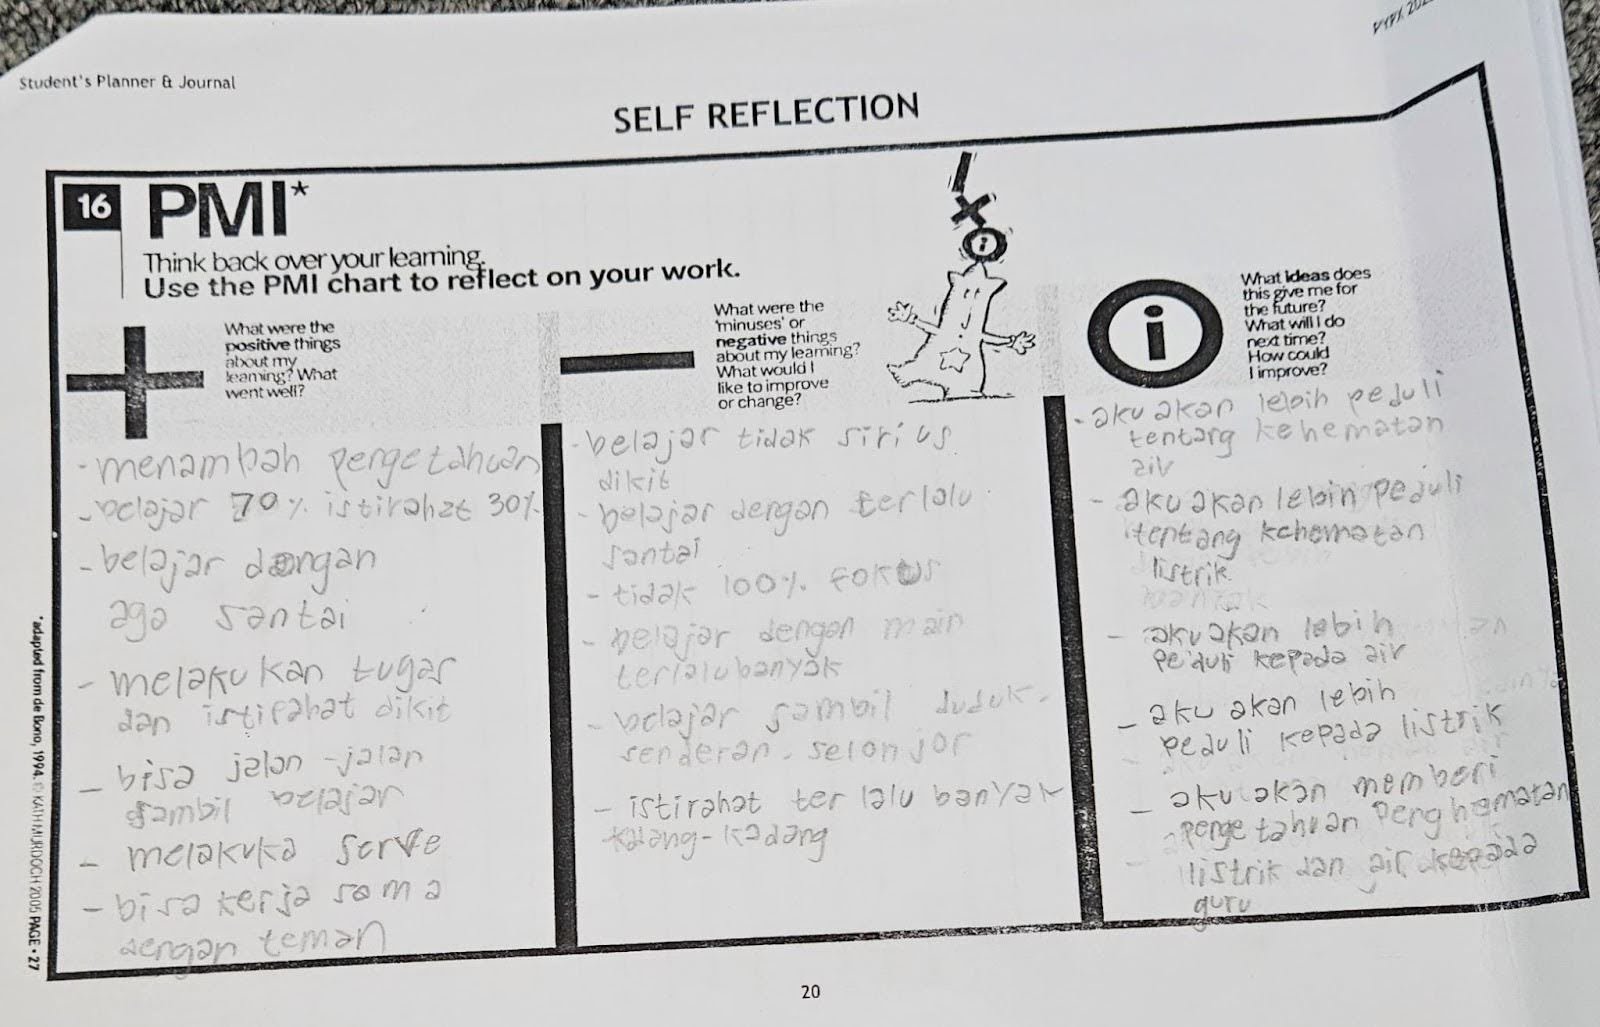 PYPX 202
Student's Planner & Journal
SELF REFLECTION
16
PMI*
Think back over your learning.
Use the PMI chart to reflect on your work.
What were the
positive things
about my
learning? What
went well?
- menambah pengetahuan
- belajar 70% istirahat 30%
- belajar dengan
aga santai
- melakukan tugas
dan istirahat dikit
- bisa jalan-jalan
sambil belajar
- melakuka serve
- bisa kerja sama
dengan teman
What were the
'minuses' or
negative things
about my learning?
What would I
like to improve
or change?
- belajar tidak sirius
dikit
- belajar dengan terlalu
santai
- tidak 100% fokus
- belajar dengan main
terlalu banyak
- belajar sambil duduk-
senderan-selonjor
- istirahat terlalu banyak
kadang-kadang
i
What ideas does
this give me for
the future?
What will I do
next time?
How could
I improve?
- aku akan lebih peduli
tentang kehematan
air
- aku akan lebih peduli
tentang kehematan
listrik
- aku akan lebih
peduli kepada air
- aku akan lebih
peduli kepada listrik
- aku akan memberi
pengetahuan penghematan
listrik dan air kepada
guru
*adapted from de Bono, 1994. © KATH MURDOCH 2005 PAGE • 27
20